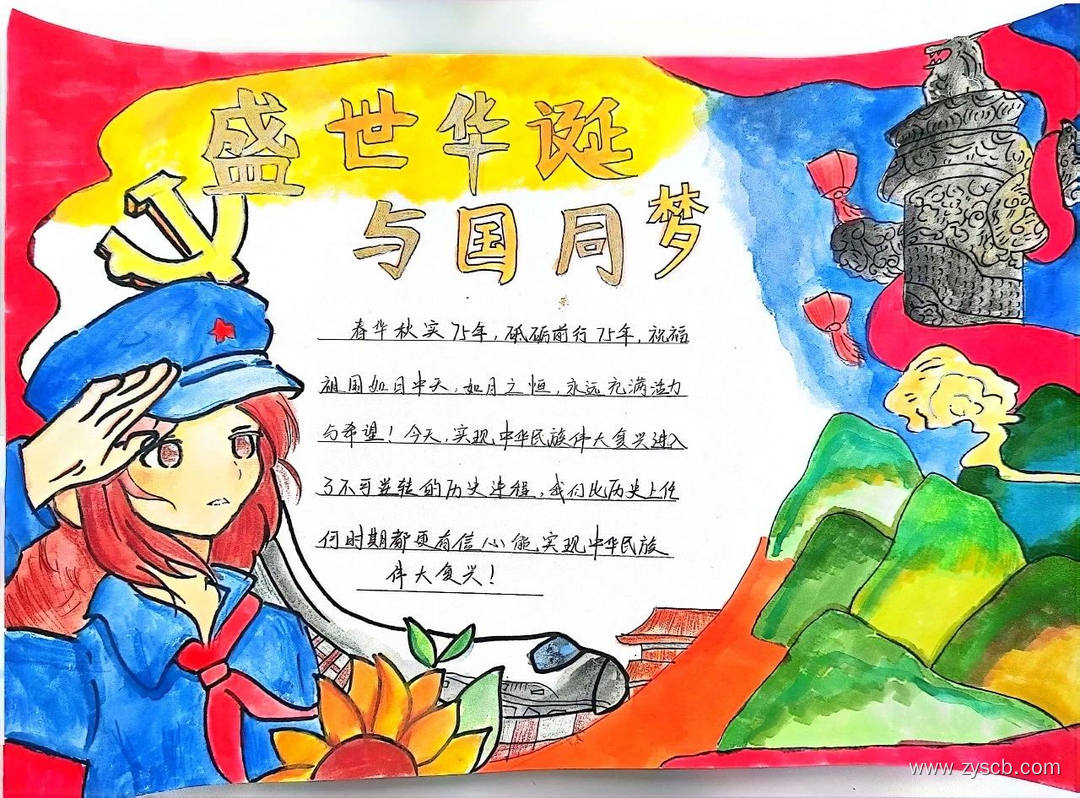 盛世华诞
与国同梦
春华秋实75年，砥砺前行75年，祝福
祖国如日中天，如月之恒，永远充满活力
与希望！今天，实现中华民族伟大复兴进入
了不可逆转的历史进程，我们比历史上任
何时期都更有信心能实现中华民族
伟大复兴！
www.zyscb.com